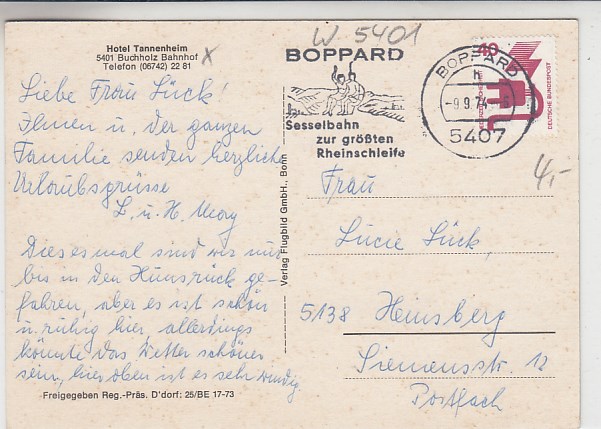 Hotel Tannenheim
5401 Buchholz Bahnhof x
Telefon (06742) 22 81
Liebe Frau Lück!
Ihnen u. der ganzen
Familie senden herzliche
Urlaubsgrüsse
L. u. H.
Diesesmal sind wir nur
bis in den Hunsrück ge-
fahren, aber es ist schön
u. ruhig hier, allerdings
könnte das Wetter schöner
sein, hier oben ist es sehr windig.
Freigegeben Reg.-Präs. D'dorf: 25/BE 17-73
Verlag Flugbild GmbH., Bonn
W 5401
BOPPARD
Sesselbahn
zur größten
Rheinschleife
BOPPARD
h
-9.9.74
5407
40
DEUTSCHE BUNDESPOST
4,-
Frau
Lucie Lück,
5138 Heinsberg
Siemensstr. 12
Postfach